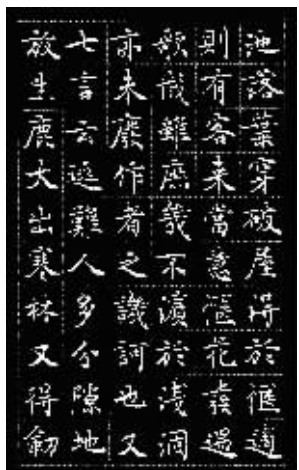 池落葉穿破屋得於愜適
則有客來當意愜花發遇
歌成雖庶幾不濱於淺涸
亦未廢作者之譏訶也又
七言云避難人多分隙地
放生鹿大出寒林又得劍